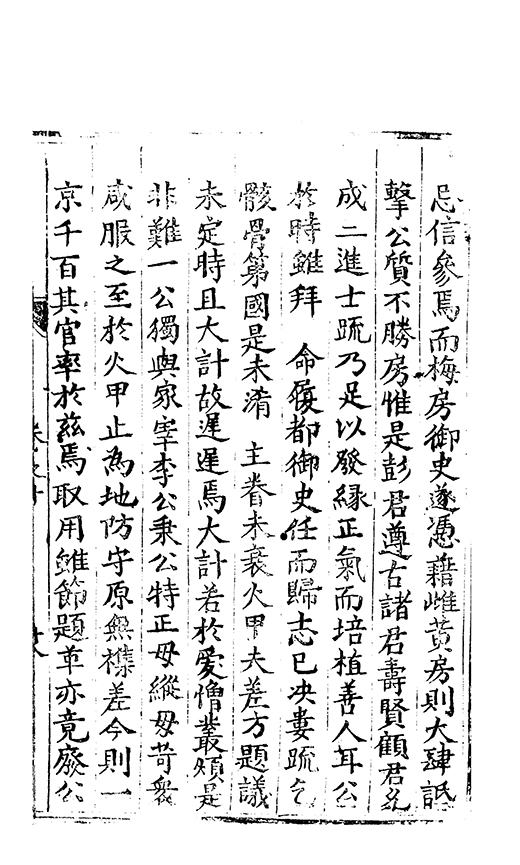 忌信參焉而梅房御史遂憑藉雌黃房則大肆詆
擊公質不勝房惟是彭君遵古諸君壽賢顧君允
成二進士䟽乃足以發緣正氣而培植善人耳公
於時雖拜　命復都御史任而歸志已决婁䟽乞
骸骨第國是未淆　主眷未衰火甲夫差方題議
未定時且大計故遲遲焉大計若於愛憎叢煩是
非難一公獨與家宰李公秉公特正毋縱毋苛衆
咸服之至於火甲止為地防守原無襍差今則一
京千百其官率於兹焉取用雖節題革亦竟廢公